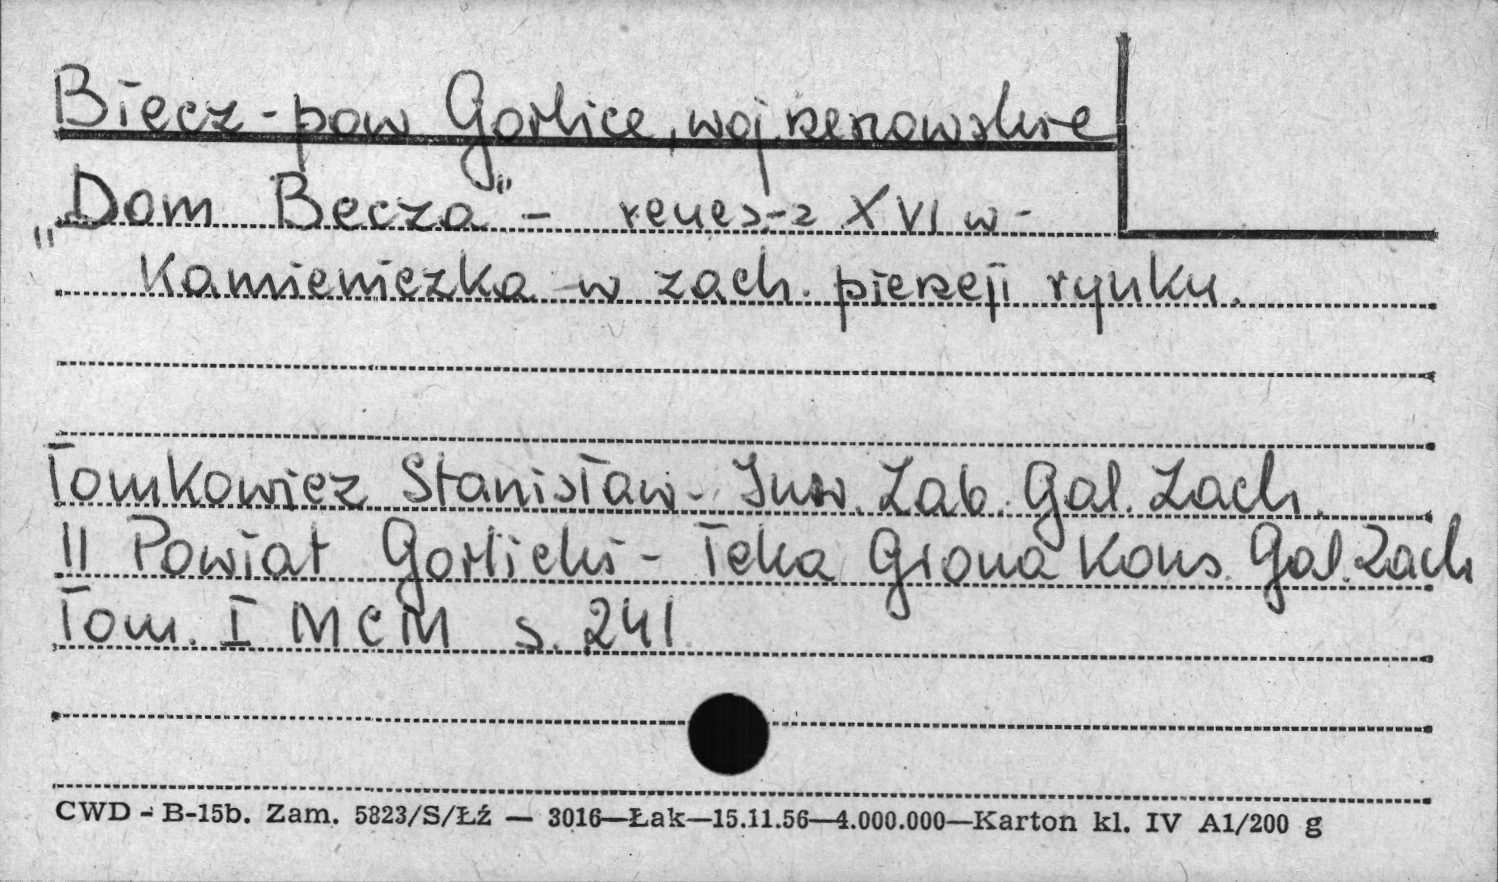 Biecz - pow Gorlice, woj. rzeszowskie
„Dom Becza" - renes. - z XVI w -
Kamieniczka w zach. pierzeji rynku.
Tomkowicz Stanisław - Inw. Zab. Gal. Zach.
II Powiat Gorlicki - Teka Grona Kons. Gal. Zach
Tom. I MCM s. 241.
CWD - B-15b. Zam. 5823/S/Łź — 3016—Łak—15.11.56—4.000.000—Karton kl. IV A1/200 g